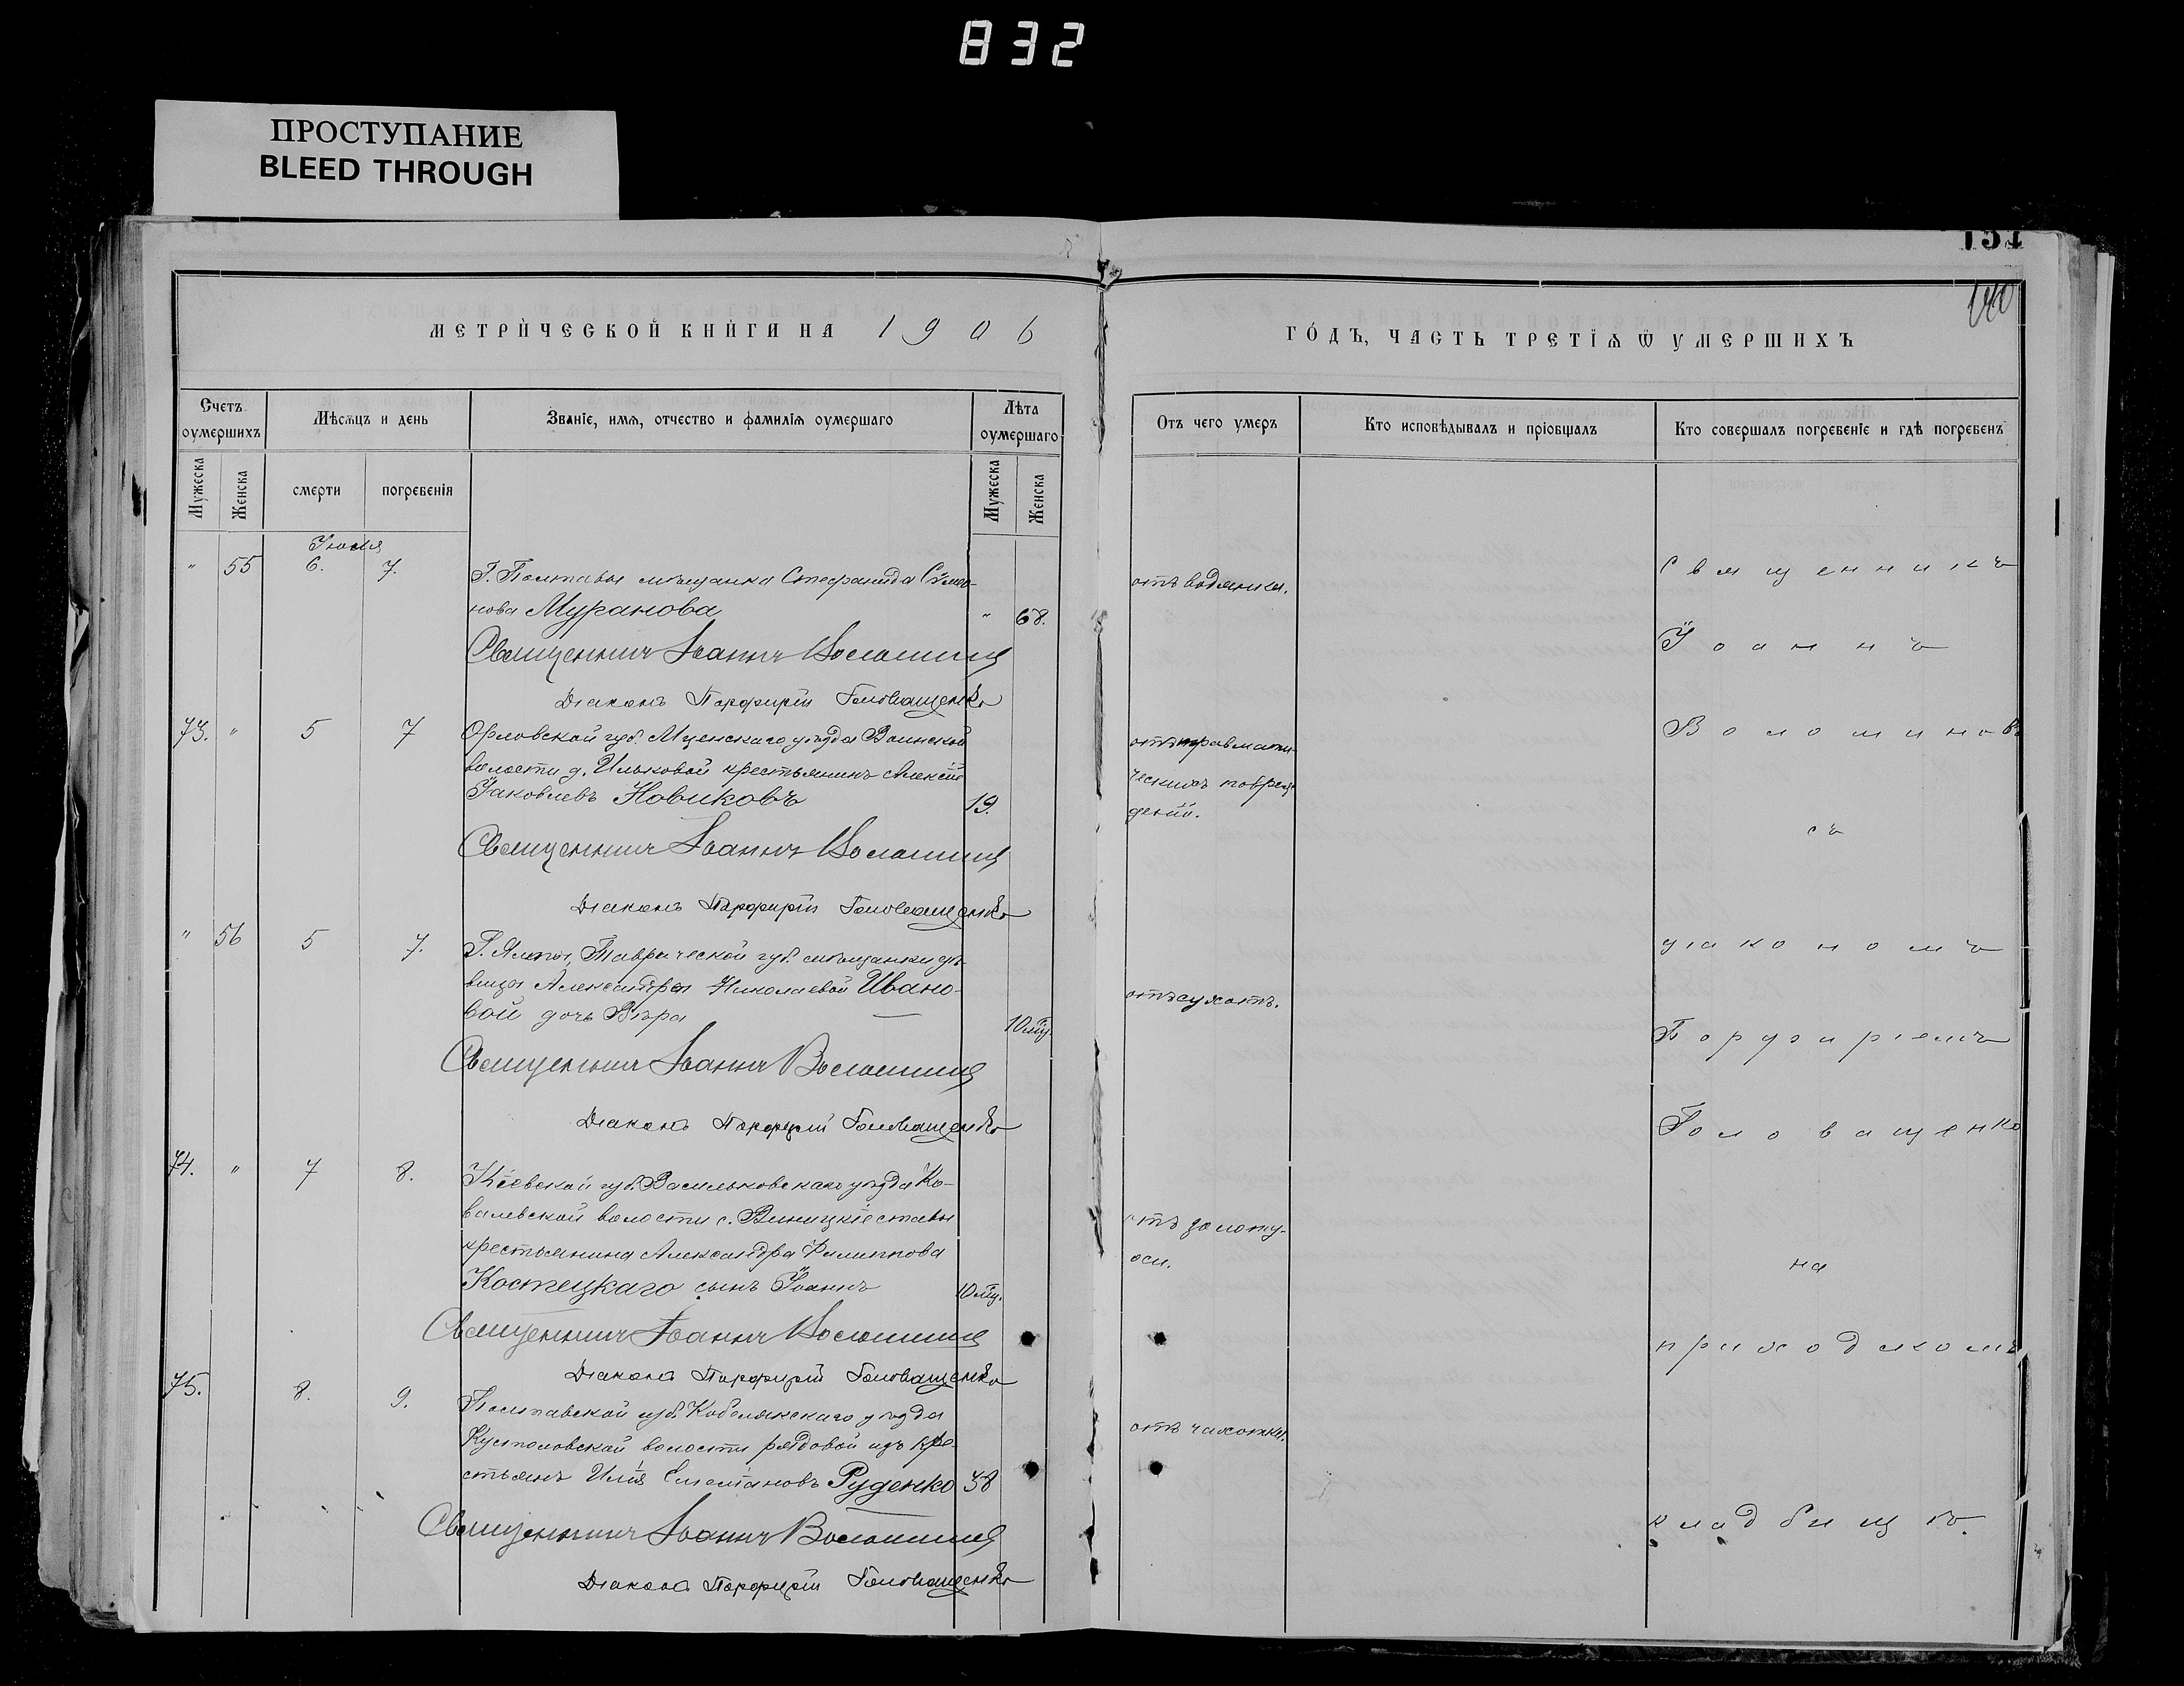 832
ПРОСТУПАНИЕ
BLEED THROUGH
131
140
МЕТРИ́ЧЕСКОЙ КНИ́ГИ НА 1906
ГО́ДЪ, ЧАСТЬ ТРЕТІѦ Ѿ УМЕРШИХЪ
Счетъ оумершихъ
Мѣсѧцъ и день
Званіе, имѧ, отчество и фамиліѧ оумершаго
Лѣта оумершаго
Отъ чего умеръ
Кто исповѣдывалъ и пріобщалъ
Кто совершалъ погребеніе и гдѣ погребенъ
Мужеска
Женска
смерти
погребенія
Мужеска
Женска
Іюля
" 55 6. 7. Г. Полтавы мѣщанка Стефанида Сѵмо- отъ водянки. Священникъ
нова Муранова " 68.
Священникъ Іоаннъ Волошинъ Іоаннъ
Діаконъ Порфирій Головащенко
73. " 5 7 Орловской губ. Мценскаго уѣзда Воинской отъ травмати- Волошиновъ
волости д. Ильковой крестьянинъ Алексій ческихъ повреж-
Іаковлевъ Новиковъ 19. деній.
съ
Священникъ Іоаннъ Волошинъ
Діаконъ Порфирій Головащенко
" 56 5 7. Г. Ялты, Таврической губ. мѣщанки дѣ- діакономъ
вицы Александры Николаевой Ивано- отъ сухотъ.
вой дочь Вѣра 10 мц. Порфиріемъ
Священникъ Іоаннъ Волошинъ
Діаконъ Порфирій Головащенко Головащенко
74. " 7 8. Кіевской губ. Васильковскаго уѣзда Ко-
валевской волости с. Виницкіе ставы отъ золоту-
крестьянина Александра Филиппова охи. на
Костецкаго сынъ Іоаннъ 10 мц.
Священникъ Іоаннъ Волошинъ приходскомъ
Діаконъ Порфирій Головащенко
75. 8. 9. Полтавской губ. Кобелякскаго уѣзда отъ чахотки.
Кустоловской волости рядовой изъ кре-
стьянъ Илія Емеліановъ Руденко 38
Священникъ Іоаннъ Волошинъ кладбищѣ.
Діаконъ Порфирій Головащенко